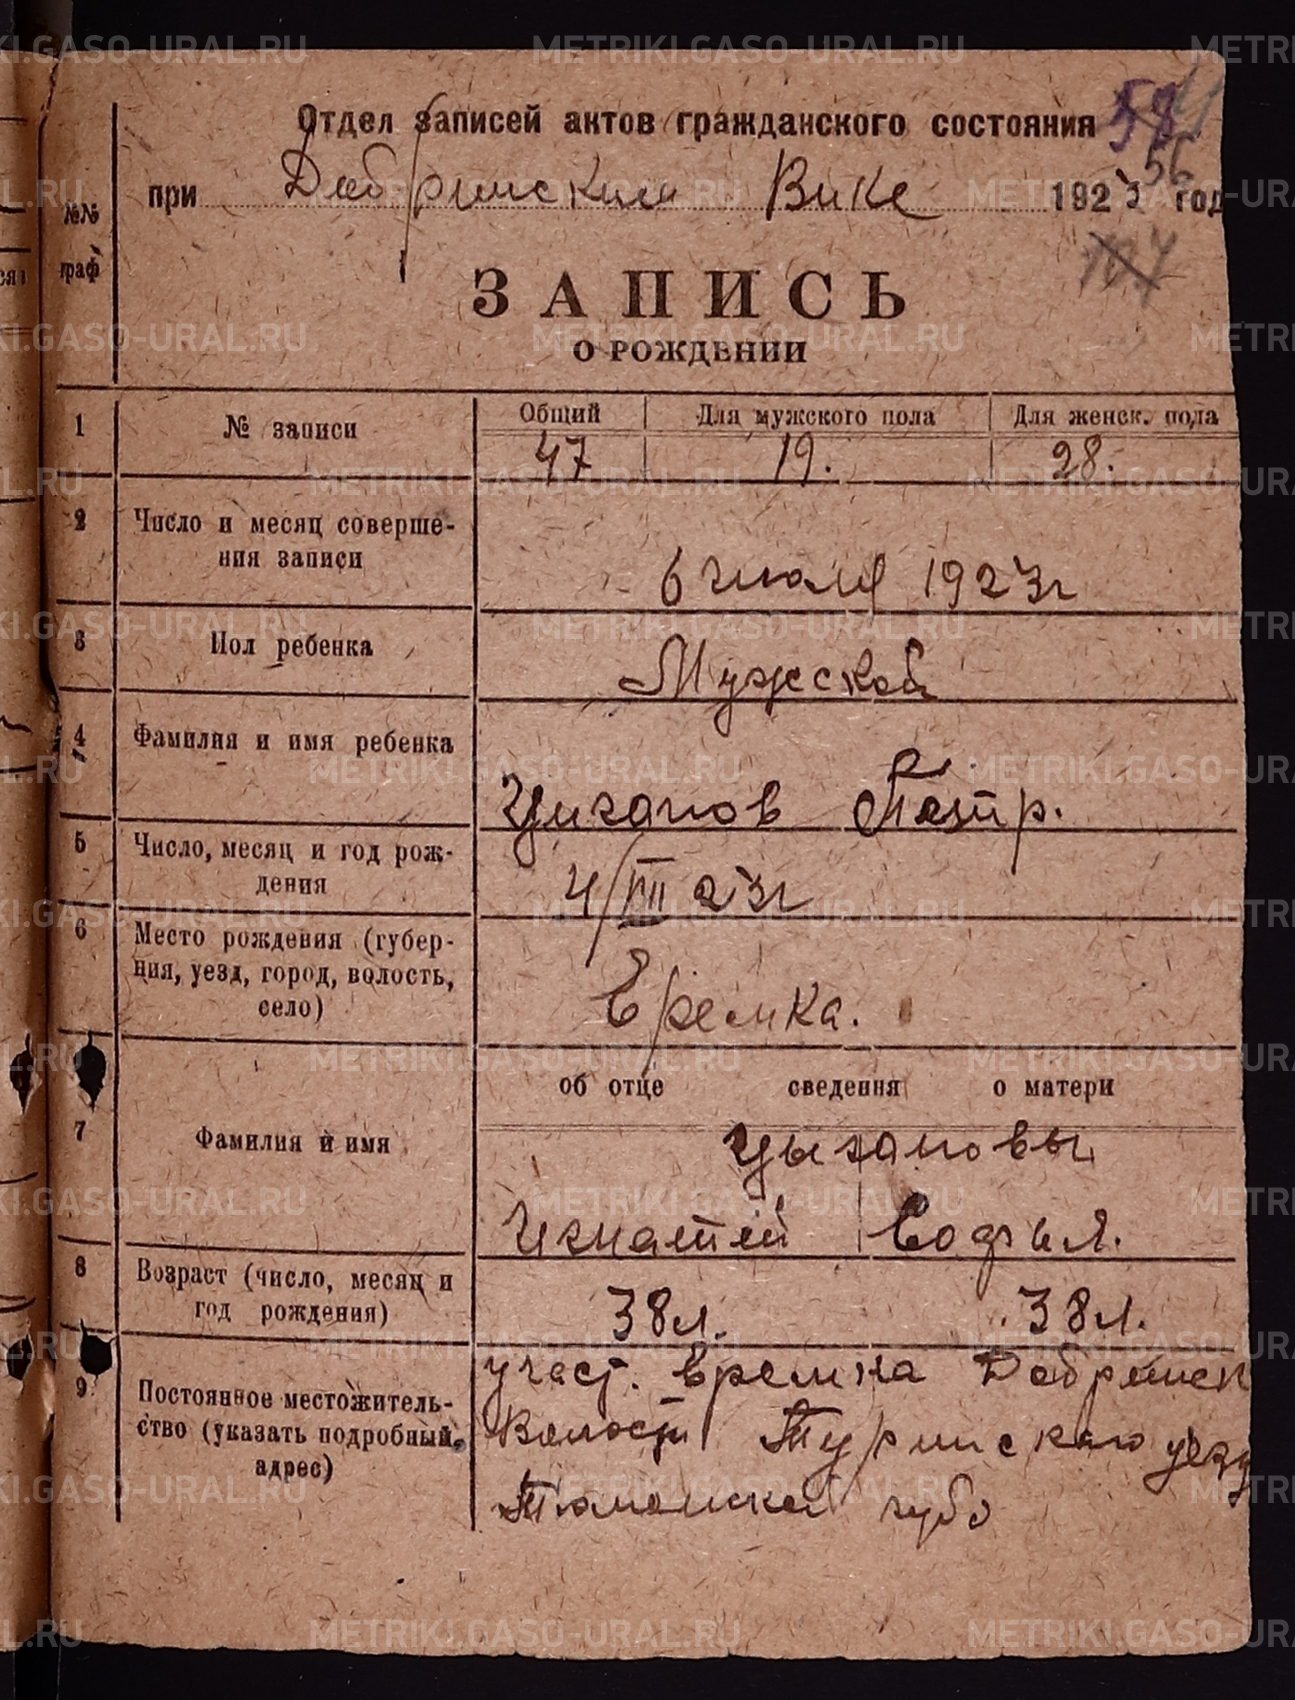 Отдел записей актов гражданского состояния
при Добринским Вике 1923 год
58
56
№№ граф
ЗАПИСЬ
О РОЖДЕНИИ
1 № записи Общий Для мужского пола Для женск. пола
47 19. 28.
2 Число и месяц соверше-
ния записи
6 июля 1923г
3 Пол ребенка
Мужской
4 Фамилия и имя ребенка
Цыганов Петр.
5 Число, месяц и год рож-
дения
4/VII 23г
6 Место рождения (губер-
ния, уезд, город, волость,
село)
Еремка.
об отце сведения о матери
7 Фамилия и имя
Цыгановы
Игнатий Софья.
8 Возраст (число, месяц и
год рождения)
38л. 38л.
9 Постоянное местожитель-
ство (указать подробный
адрес)
участ. Еремка Добринск
Волости Туринского уезд
Тюменской губ
METRIKI.GASO-URAL.RU